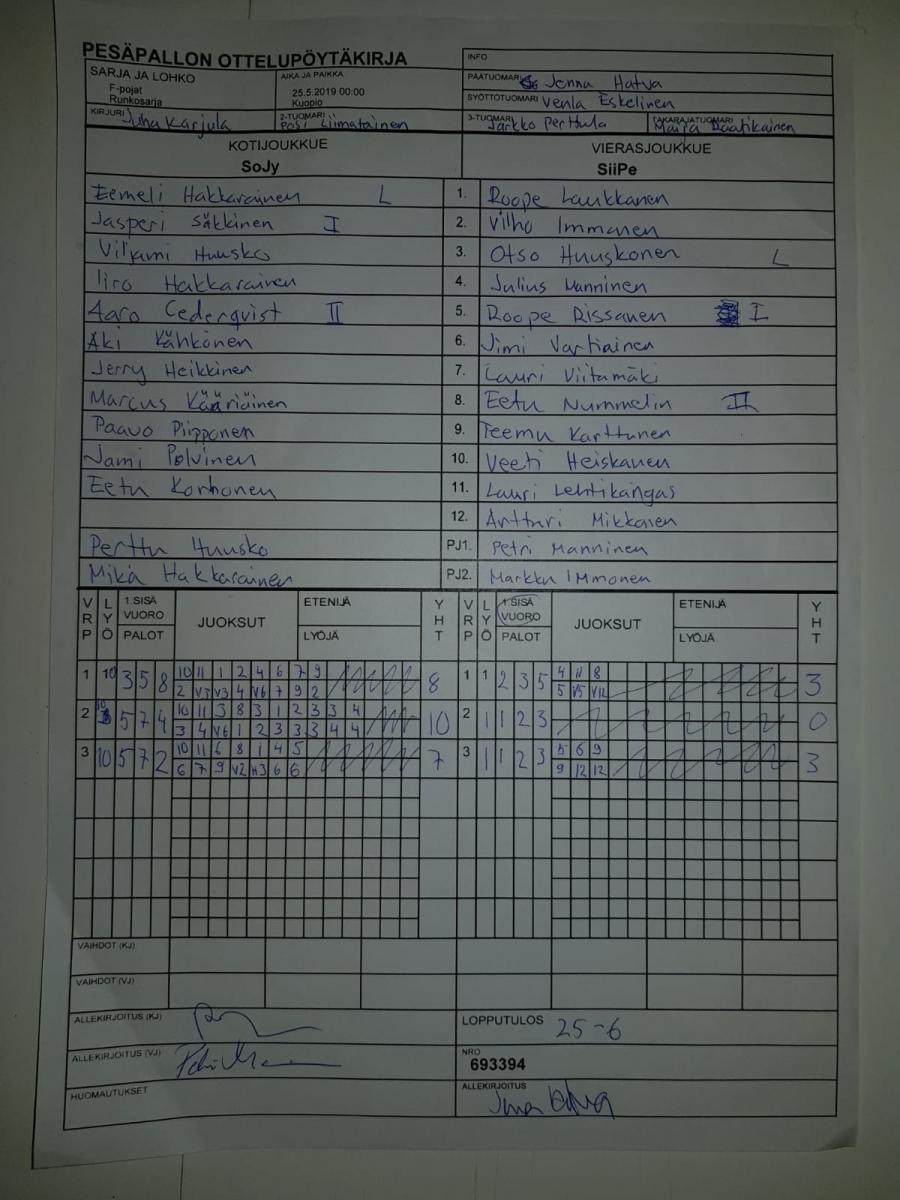 PESÄPALLON OTTELUPÖYTÄKIRJA
INFO
SARJA JA LOHKO
F-pojat
Runkosarja
AIKA JA PAIKKA
25.5.2019 00:00
Kuopio
PÄÄTUOMARI Jonna Hatva
SYÖTTÖTUOMARI Venla Eskelinen
KIRJURI Juha Karjula
2-TUOMARI Liimatainen
3-TUOMARI Jarkko Perttula
TAKARAJATUOMARI Maija
KOTIJOUKKUE
SoJy
VIERASJOUKKUE
SiiPe
Eemeli Hakkarainen L 1. Roope Laukkanen
Jasperi Säkkinen I 2. Vilho Immonen
Viljami Huusko 3. Otso Huuskonen L
Iiro Hakkarainen 4. Julius Manninen
Aaro Cederqvist II 5. Roope Rissanen I
Aki Kähkönen 6. Jimi Vartiainen
Jerry Heikkinen 7. Lauri Viitamäki
Marcus Kääriäinen 8. Eetu Nummelin II
Paavo Piipponen 9. Teemu Karttunen
Jami Polvinen 10. Veeti Heiskanen
Eetu Korhonen 11. Lauri Lehtikangas
12. Artturi
Perttu Huusko PJ1. Petri Manninen
Mika Hakkarainen PJ2. Markku Immonen
VRP LYÖ 1.SISÄ VUORO PALOT JUOKSUT ETENIJÄ LYÖJÄ YHT VRP LYÖ 1.SISÄ VUORO PALOT JUOKSUT ETENIJÄ LYÖJÄ YHT
1 10 3 5 8 10 11 1 2 4 6 7 9 8 1 1 2 3 5 4 11 8 3
2 V3 V3 4 V6 7 9 2 5 V5 V12
2 10 5 7 4 10 11 3 8 3 1 2 3 3 4 10 2 1 1 2 3 0
3 4 V6 1 2 3 3 3 4 4
3 10 5 7 2 10 11 6 8 1 4 5 7 3 1 1 2 3 5 6 9 3
6 7 9 V2 H3 6 6 9 12 12
VAIHDOT (KJ)
VAIHDOT (VJ)
ALLEKIRJOITUS (KJ)
LOPPUTULOS 25-6
ALLEKIRJOITUS (VJ)
NRO
693394
HUOMAUTUKSET
ALLEKIRJOITUS